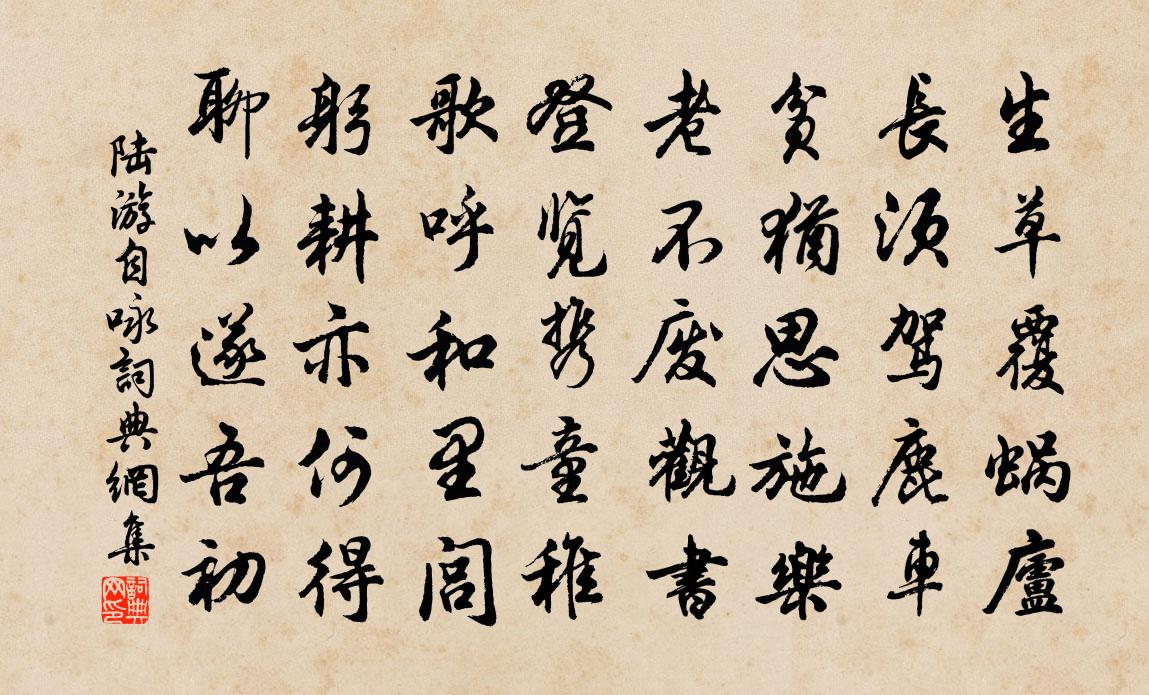 生草覆蜗廬
長須駕鹿車
貧猶思施樂
老不废觀書
登览携童稚
歌呼和里閭
躬耕亦何得
聊以遂吾初
陆游自咏詞典網集
詞典网印